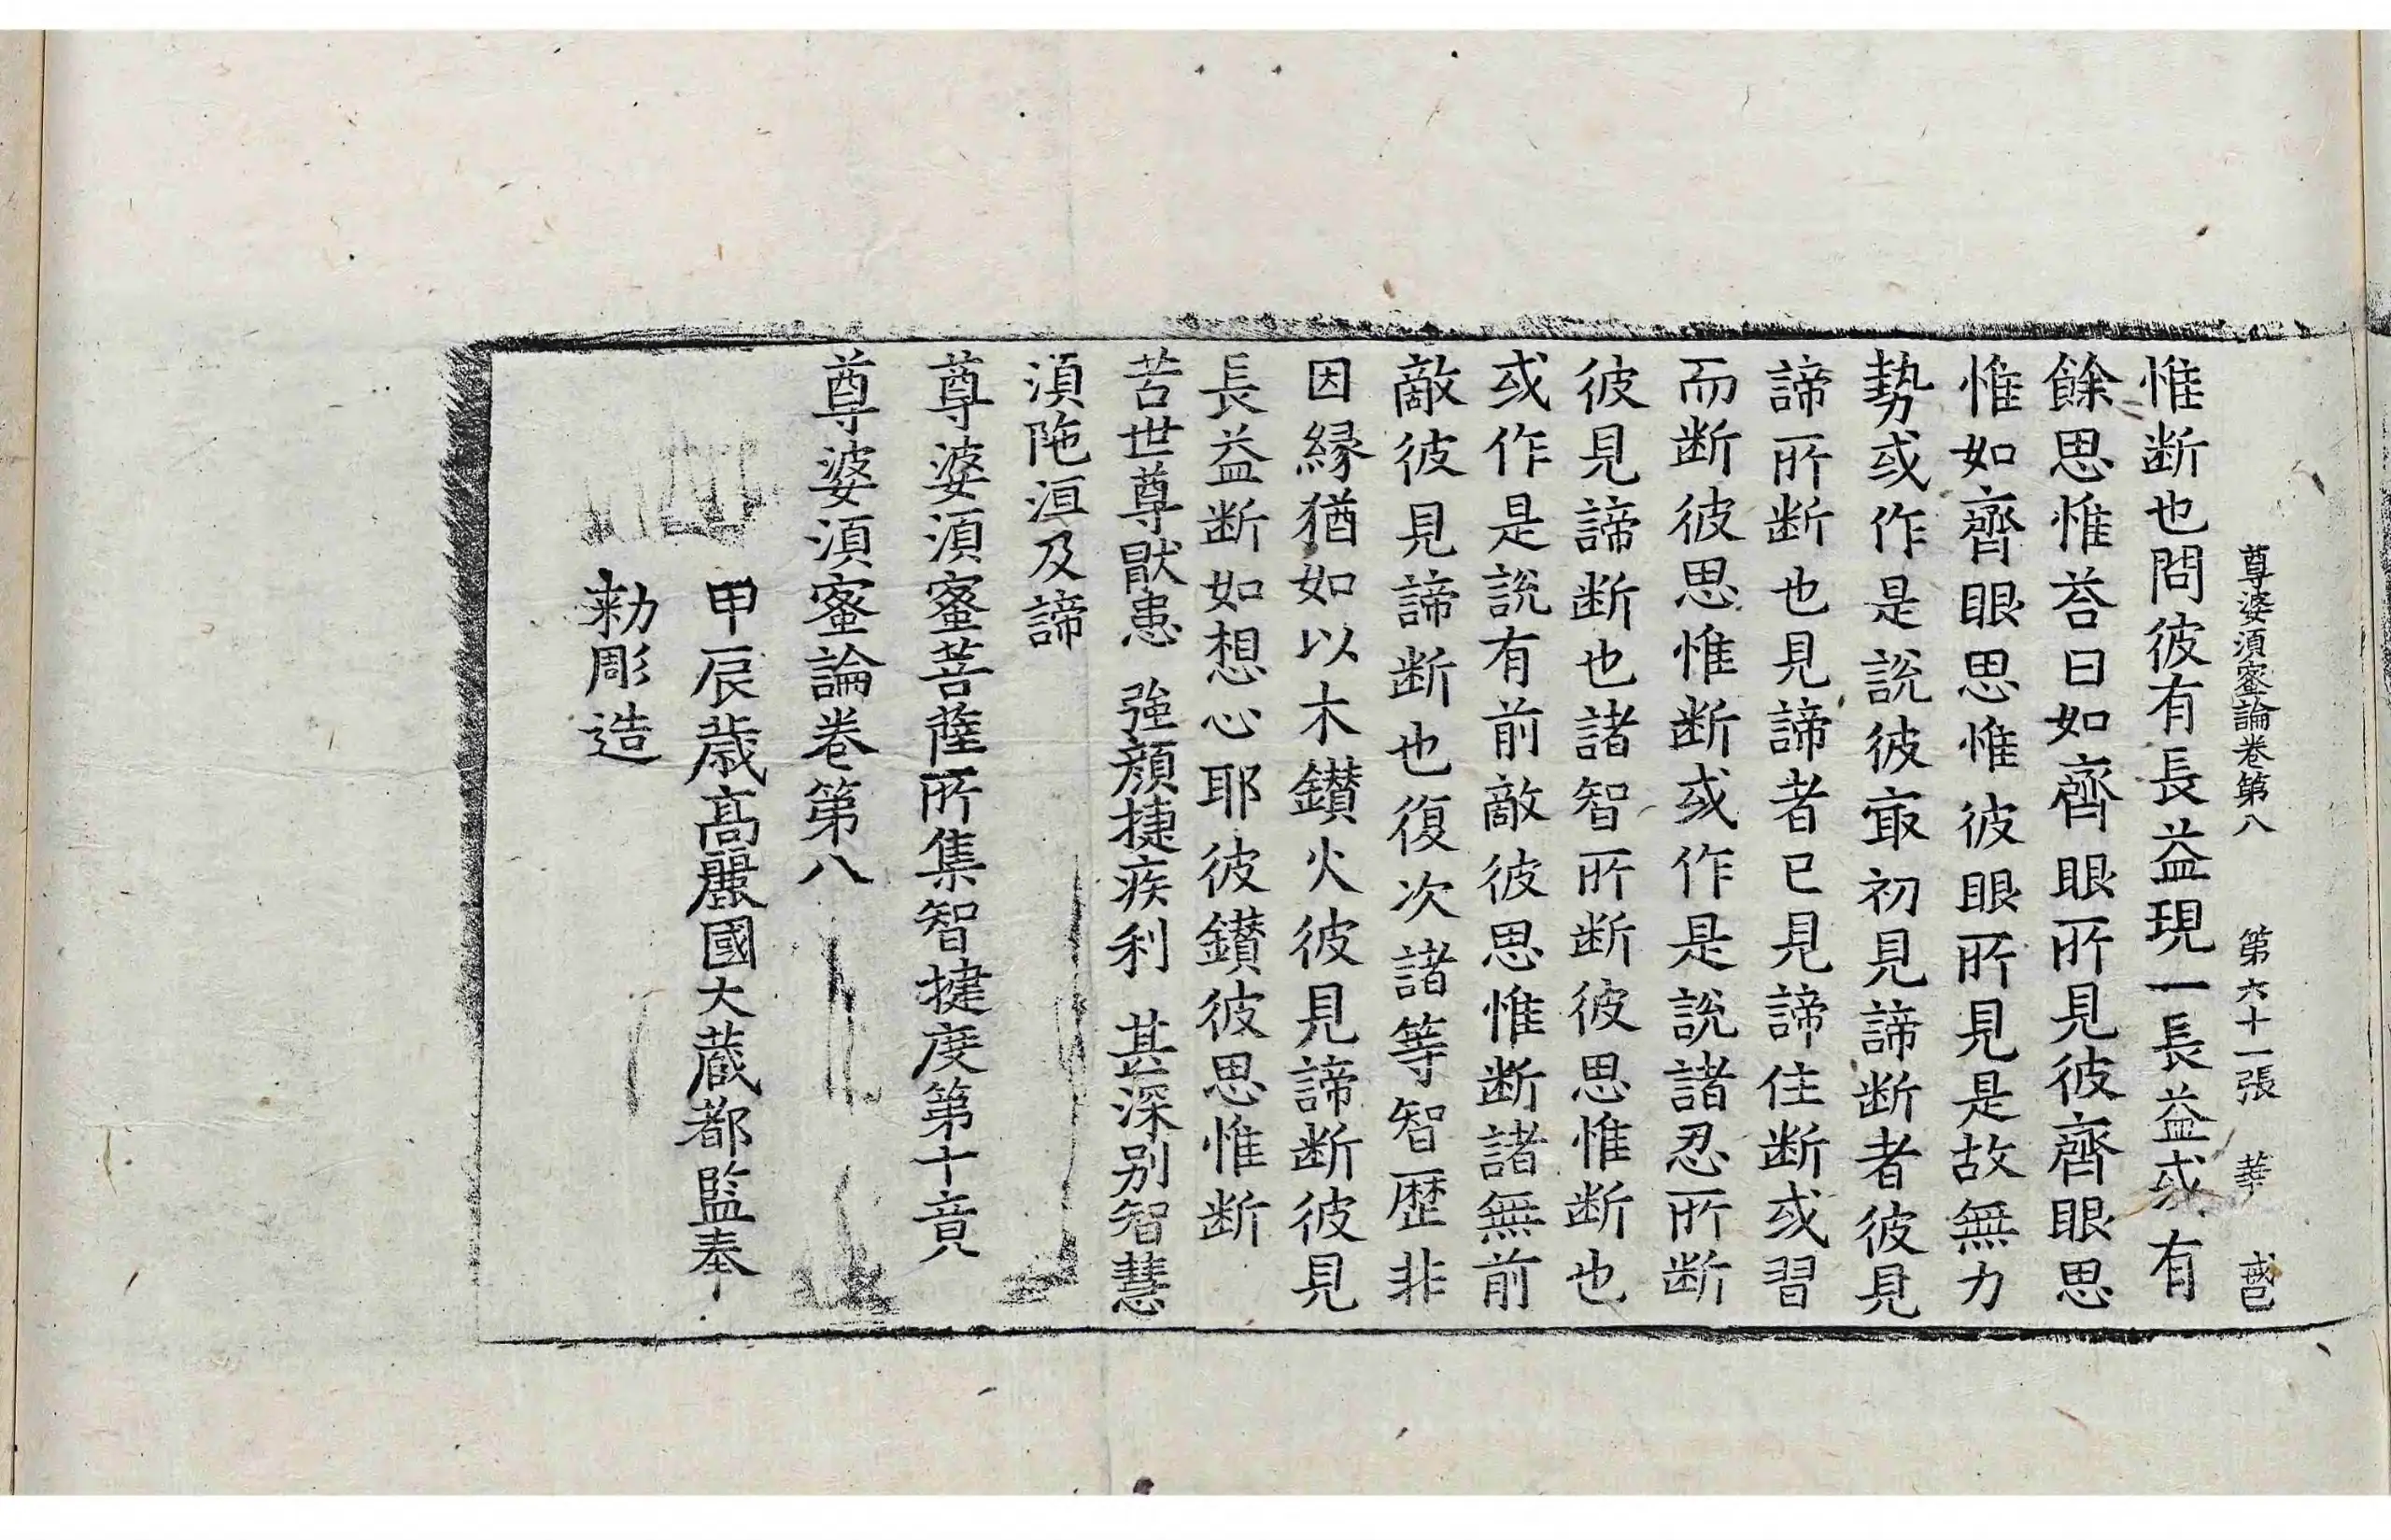 尊婆須蜜論卷第八 第六十一張 華 戒巳
惟断也問彼有長益現一長益或有
餘思惟荅曰如齊眼所見彼齊眼思
惟如齊眼思惟彼眼所見是故無力
勢或作是說彼㝡初見諦断者彼見
諦所断也見諦者已見諦住断或習
而断彼思惟断或作是說諸忍所断
彼見諦断也諸智所断彼思惟断也
或作是說有前敵彼思惟断諸無前
敵彼見諦断也復次諸等智歷非
因縁猶如以木鑚火彼見諦断彼見
長益断如想心耶彼鑚彼思惟断
苦世尊猒患 強顔捷疾利 甚深別智慧
湏陁洹及諦
尊婆須蜜菩薩所集智揵度第十竟
尊婆須蜜論卷第八
甲辰歲高麗國大藏都監奉
勑彫造